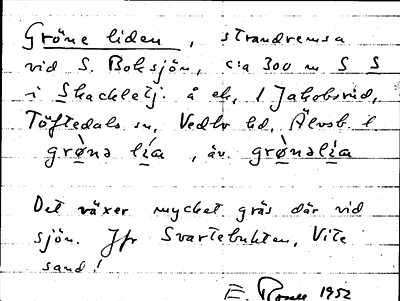 Gröne liden, strandremsa
vid S. Boksjön, c:a 300 m S S
i Skackletj. å ek, 1 Jakobsrud,
Töftedals sn, Vedbo hd, Älvsb. l
grø̀nə lía, äv. grø̀nəlía
Det växer mycket gräs där vid
sjön. Jfr Svartebukten, Vite
sand!
E. 1952